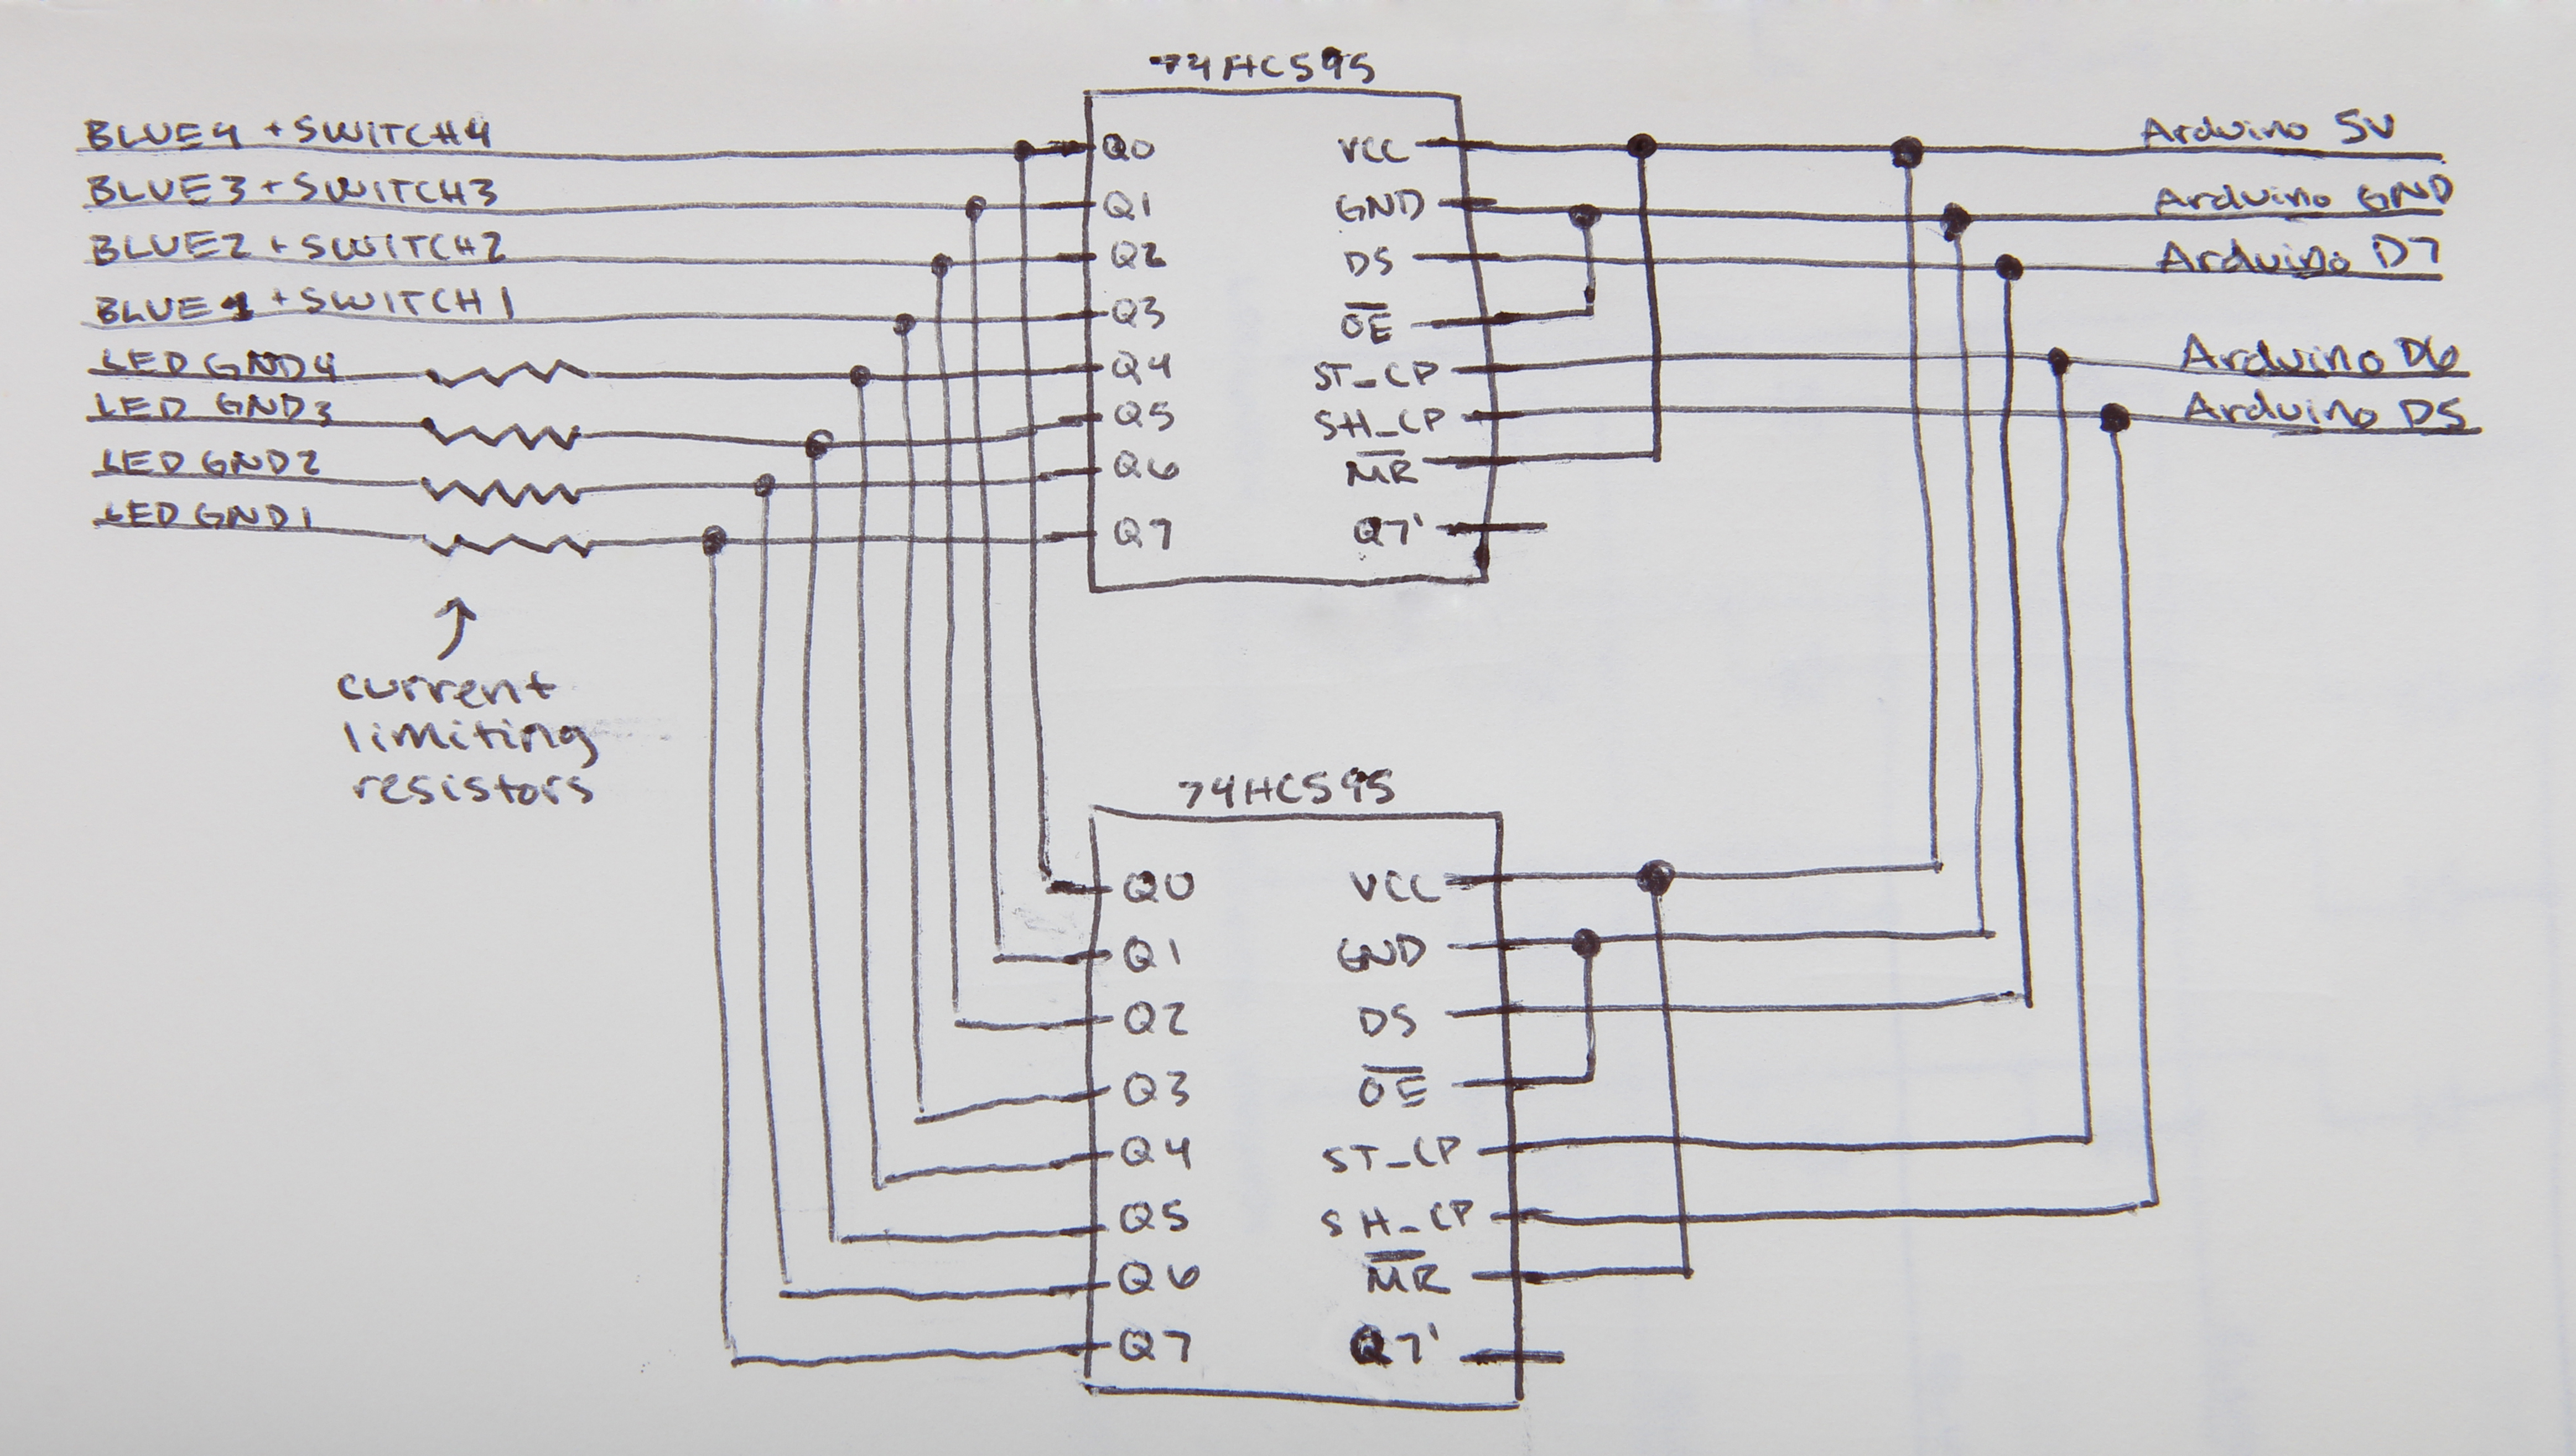 74HC595
BLUE4 + SWITCH4
BLUE3 + SWITCH3
BLUE2 + SWITCH2
BLUE1 + SWITCH1
LED GND4
LED GND3
LED GND2
LED GND1
current
limiting
resistors
Q0 VCC
Q1 GND
Q2 DS
Q3 O̅E̅
Q4 ST_CP
Q5 SH_CP
Q6 M̅R̅
Q7 Q7'
Arduino 5V
Arduino GND
Arduino D7
Arduino D6
Arduino D5
74HC595
Q0 VCC
Q1 GND
Q2 DS
Q3 O̅E̅
Q4 ST_CP
Q5 SH_CP
Q6 M̅R̅
Q7 Q7'